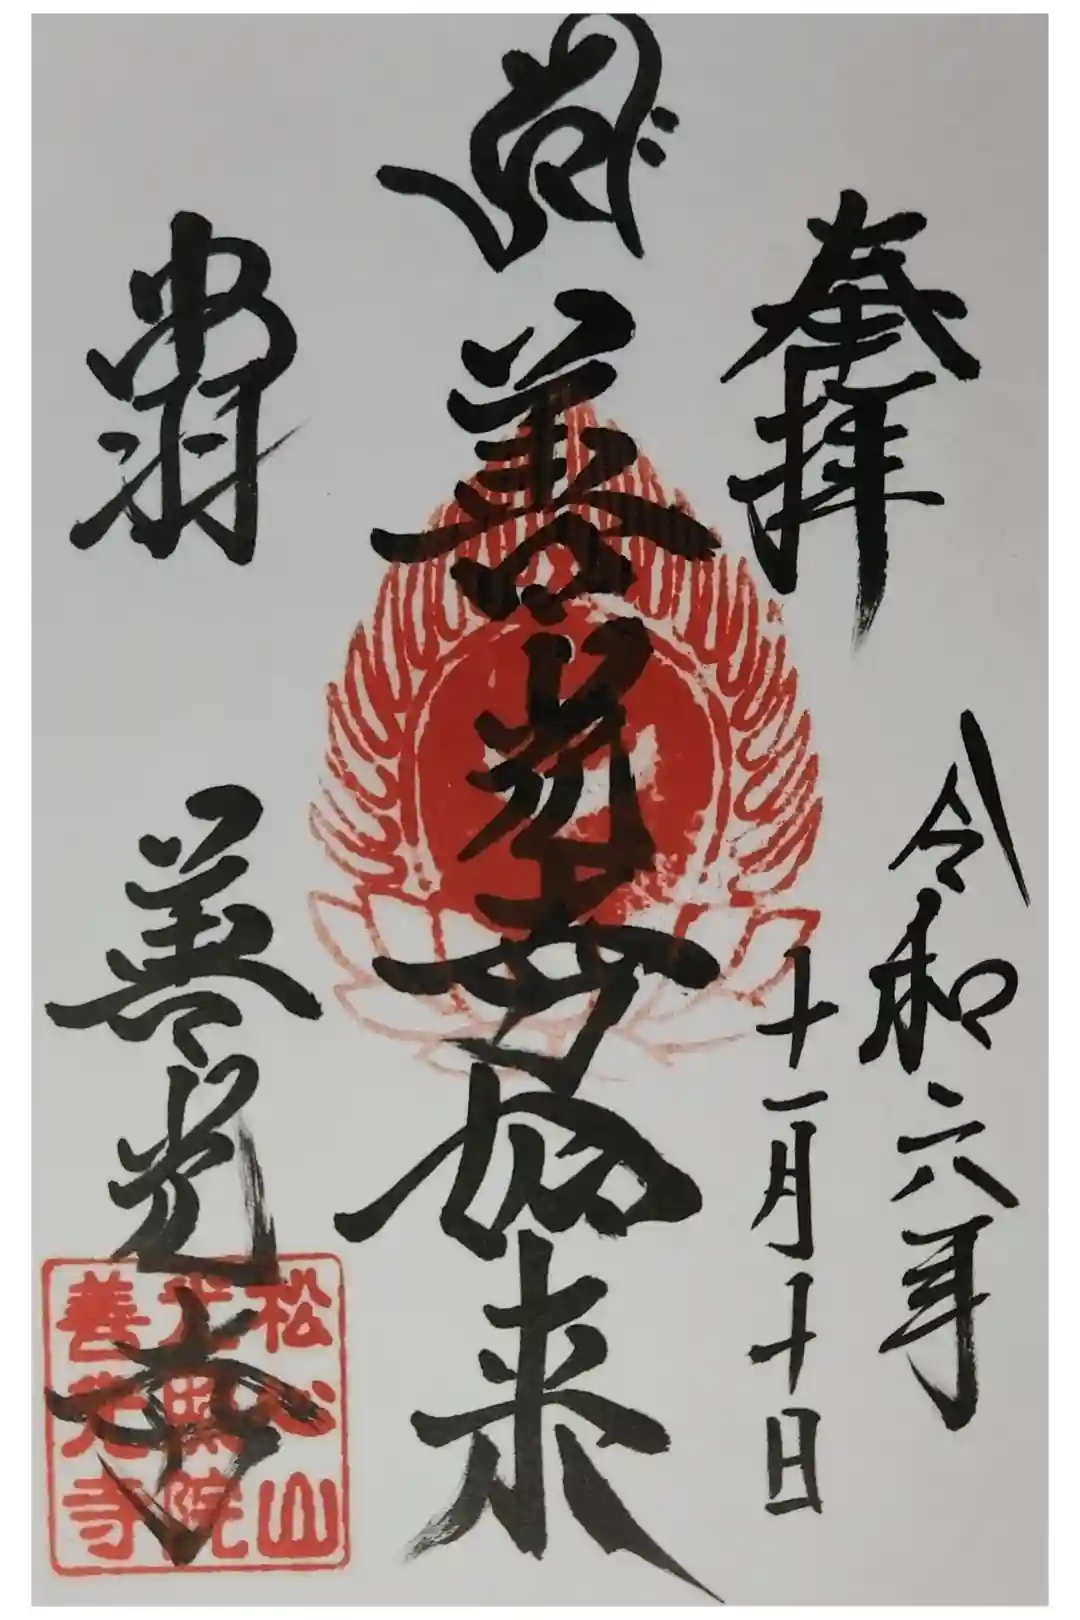 奉拝
令和六年
十一月十日
善光寺如来
出羽
善光寺
松心山
光照院
善光寺